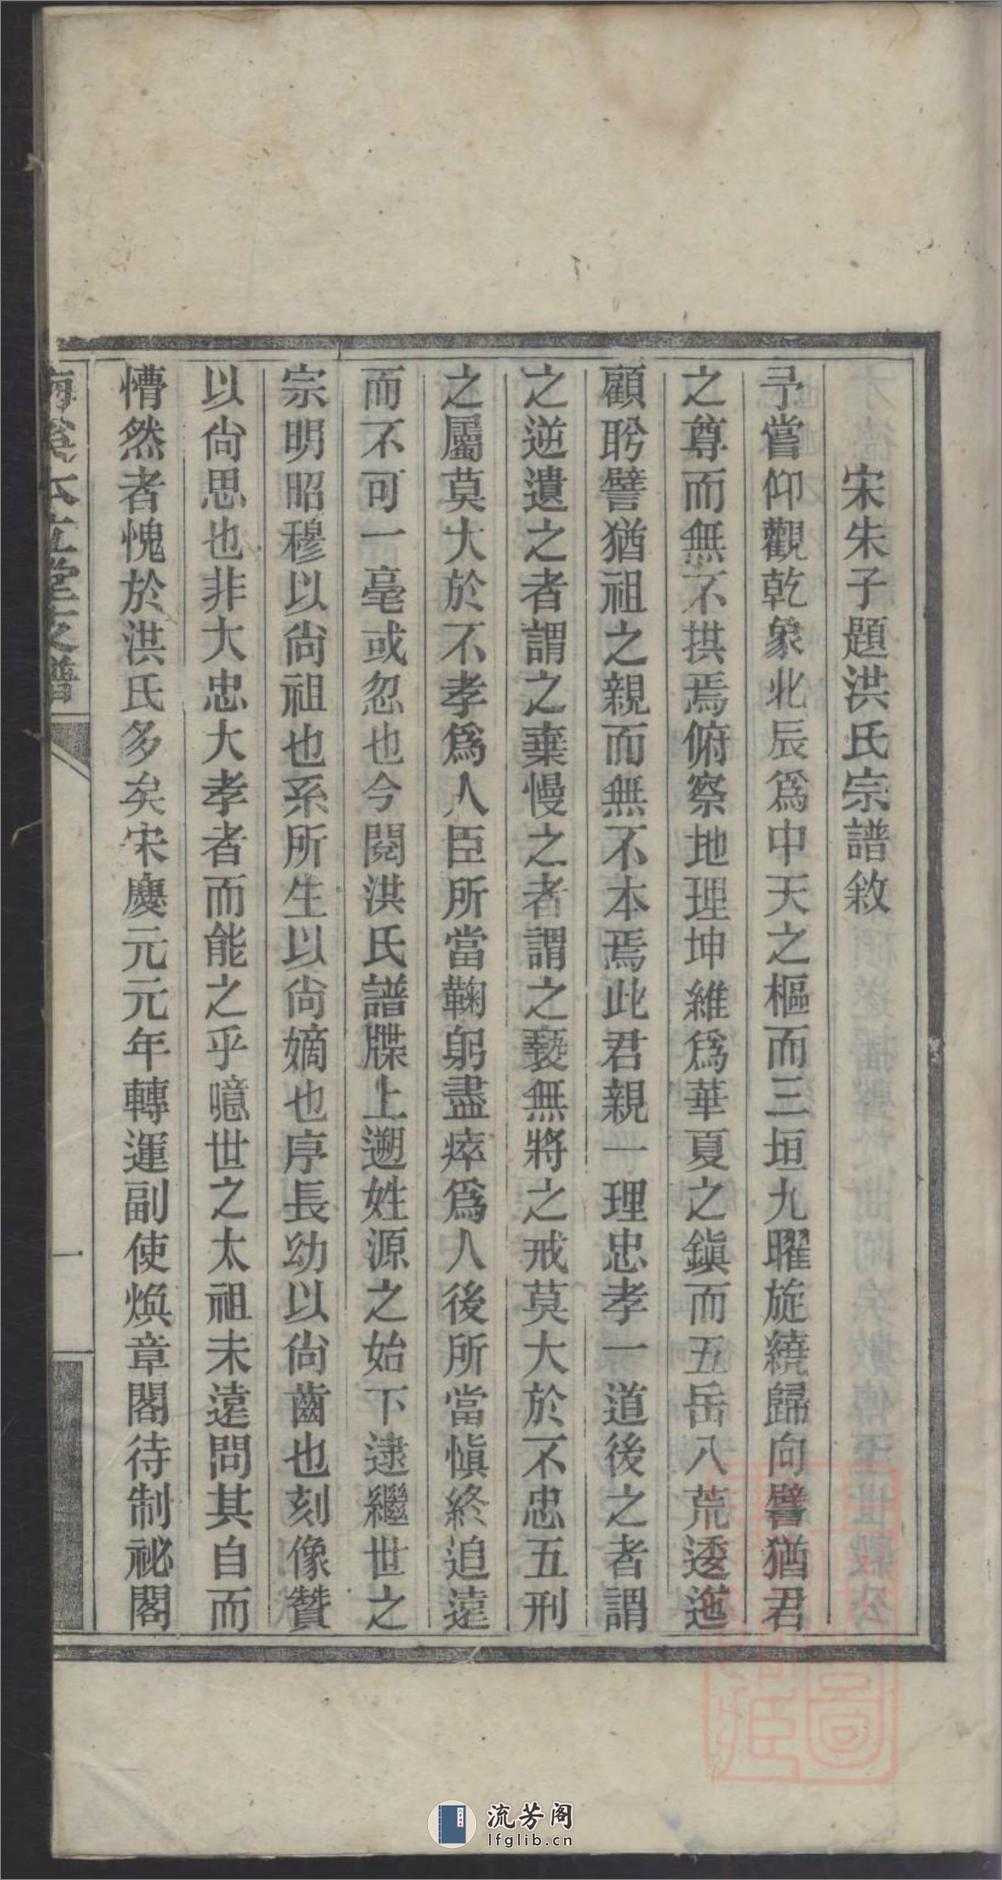 宋朱子題洪氏宗譜敘
予嘗仰觀乾象北辰爲中天之樞而三垣九曜旋繞歸向譬猶君
之尊而無不拱焉俯察地理坤維爲華夏之鎭而五岳八荒逶迤
顧盻譬猶祖之親而無不本焉此君親一理忠孝一道後之者謂
之逆遺之者謂之棄慢之者謂之褻無將之戒莫大於不忠五刑
之屬莫大於不孝爲人臣所當鞠躬盡瘁爲人後所當愼終追遠
而不可一毫或忽也今閱洪氏譜牒上遡姓源之始下逮繼世之
宗明昭穆以尙祖也系所生以尙嫡也序長幼以尙齒也刻像贊
以尙思也非大忠大孝者而能之乎噫世之太祖未遠問其自而
懵然者愧於洪氏多矣宋慶元元年轉運副使煥章閣待制祕閣
支譜
一
流芳阁
lfglib.cn